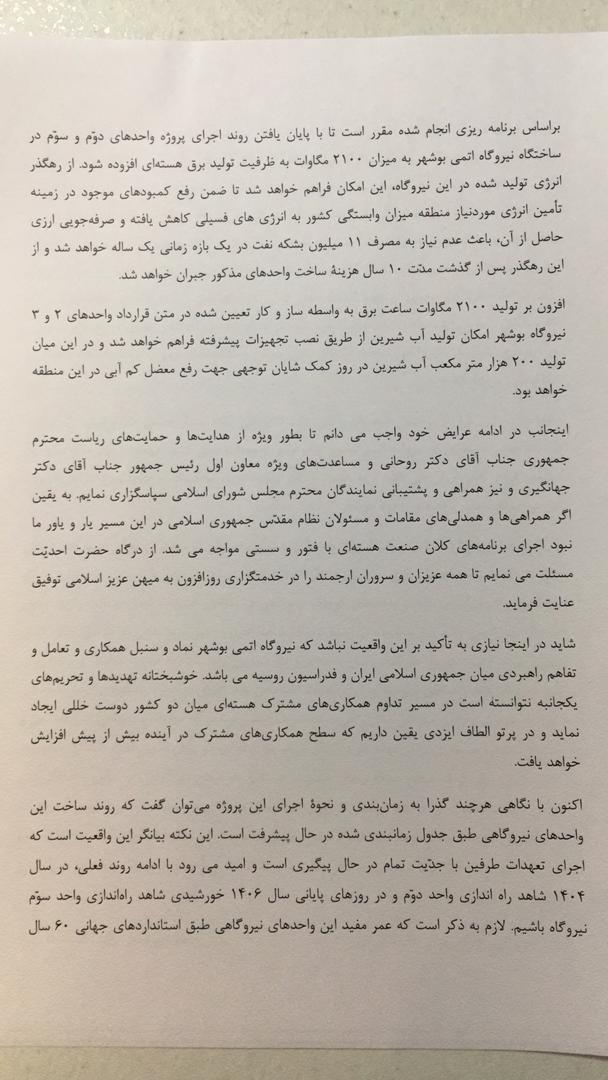 براساس برنامه ریزی انجام شده مقرر است تا با پایان یافتن روند اجرای پروژه واحدهای دوّم و سوّم در
ساختگاه نیروگاه اتمی بوشهر به میزان ۲۱۰۰ مگاوات به ظرفیت تولید برق هسته‌ای افزوده شود. از رهگذر
انرژی تولید شده در این نیروگاه، این امکان فراهم خواهد شد تا ضمن رفع کمبودهای موجود در زمینه
تأمین انرژی موردنیاز منطقه میزان وابستگی کشور به انرژی های فسیلی کاهش یافته و صرفه‌جویی ارزی
حاصل از آن، باعث عدم نیاز به مصرف ۱۱ میلیون بشکه نفت در یک بازه زمانی یک ساله خواهد شد و از
این رهگذر پس از گذشت مدّت ۱۰ سال هزینهٔ ساخت واحدهای مذکور جبران خواهد شد.
افزون بر تولید ۲۱۰۰ مگاوات ساعت برق به واسطه ساز و کار تعیین شده در متن قرارداد واحدهای ۲ و ۳
نیروگاه بوشهر امکان تولید آب شیرین از طریق نصب تجهیزات پیشرفته فراهم خواهد شد و در این میان
تولید ۲۰۰ هزار متر مکعب آب شیرین در روز کمک شایان توجهی جهت رفع معضل کم آبی در این منطقه
خواهد بود.
اینجانب در ادامه عرایض خود واجب می دانم تا بطور ویژه از هدایت‌ها و حمایت‌های ریاست محترم
جمهوری جناب آقای دکتر روحانی و مساعدت‌های ویژه معاون اول رئیس جمهور جناب آقای دکتر
جهانگیری و نیز همراهی و پشتیبانی نمایندگان محترم مجلس شورای اسلامی سپاسگزاری نمایم. به یقین
اگر همراهی‌ها و همدلی‌های مقامات و مسئولان نظام مقدّس جمهوری اسلامی در این مسیر یار و یاور ما
نبود اجرای برنامه‌های کلان صنعت هسته‌ای با فتور و سستی مواجه می شد. از درگاه حضرت احدیّت
مسئلت می نمایم تا همه عزیزان و سروران ارجمند را در خدمتگزاری روزافزون به میهن عزیز اسلامی توفیق
عنایت فرماید.
شاید در اینجا نیازی به تأکید بر این واقعیت نباشد که نیروگاه اتمی بوشهر نماد و سنبل همکاری و تعامل و
تفاهم راهبردی میان جمهوری اسلامی ایران و فدراسیون روسیه می باشد. خوشبختانه تهدیدها و تحریم‌های
یکجانبه نتوانسته است در مسیر تداوم همکاری‌های مشترک هسته‌ای میان دو کشور دوست خللی ایجاد
نماید و در پرتو الطاف ایزدی یقین داریم که سطح همکاری‌های مشترک در آینده بیش از پیش افزایش
خواهد یافت.
اکنون با نگاهی هرچند گذرا به زمان‌بندی و نحوهٔ اجرای این پروژه می‌توان گفت که روند ساخت این
واحدهای نیروگاهی طبق جدول زمانبندی شده در حال پیشرفت است. این نکته بیانگر این واقعیت است که
اجرای تعهدات طرفین با جدّیت تمام در حال پیگیری است و امید می رود با ادامه روند فعلی، در سال
۱۴۰۴ شاهد راه اندازی واحد دوّم و در روزهای پایانی سال ۱۴۰۶ خورشیدی شاهد راه‌اندازی واحد سوّم
نیروگاه باشیم. لازم به ذکر است که عمر مفید این واحدهای نیروگاهی طبق استانداردهای جهانی ۶۰ سال